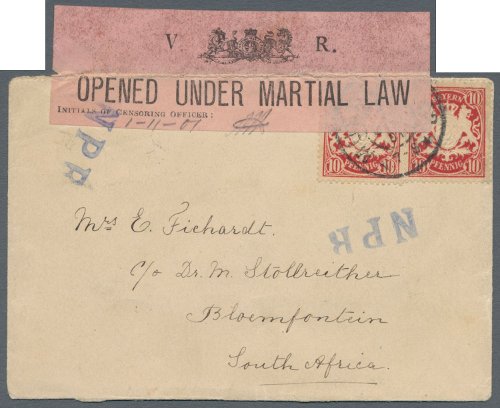 V R.
OPENED UNDER MARTIAL LAW
INITIALS OF CENSORING OFFICER:
1-11-01
BAYERN
10 10 10 10
PFENNIG PFENNIG
NPR
NPR
Mrs E. Fichardt.
c/o Dr. M. Stollreither
Bloemfontein
South Africa.